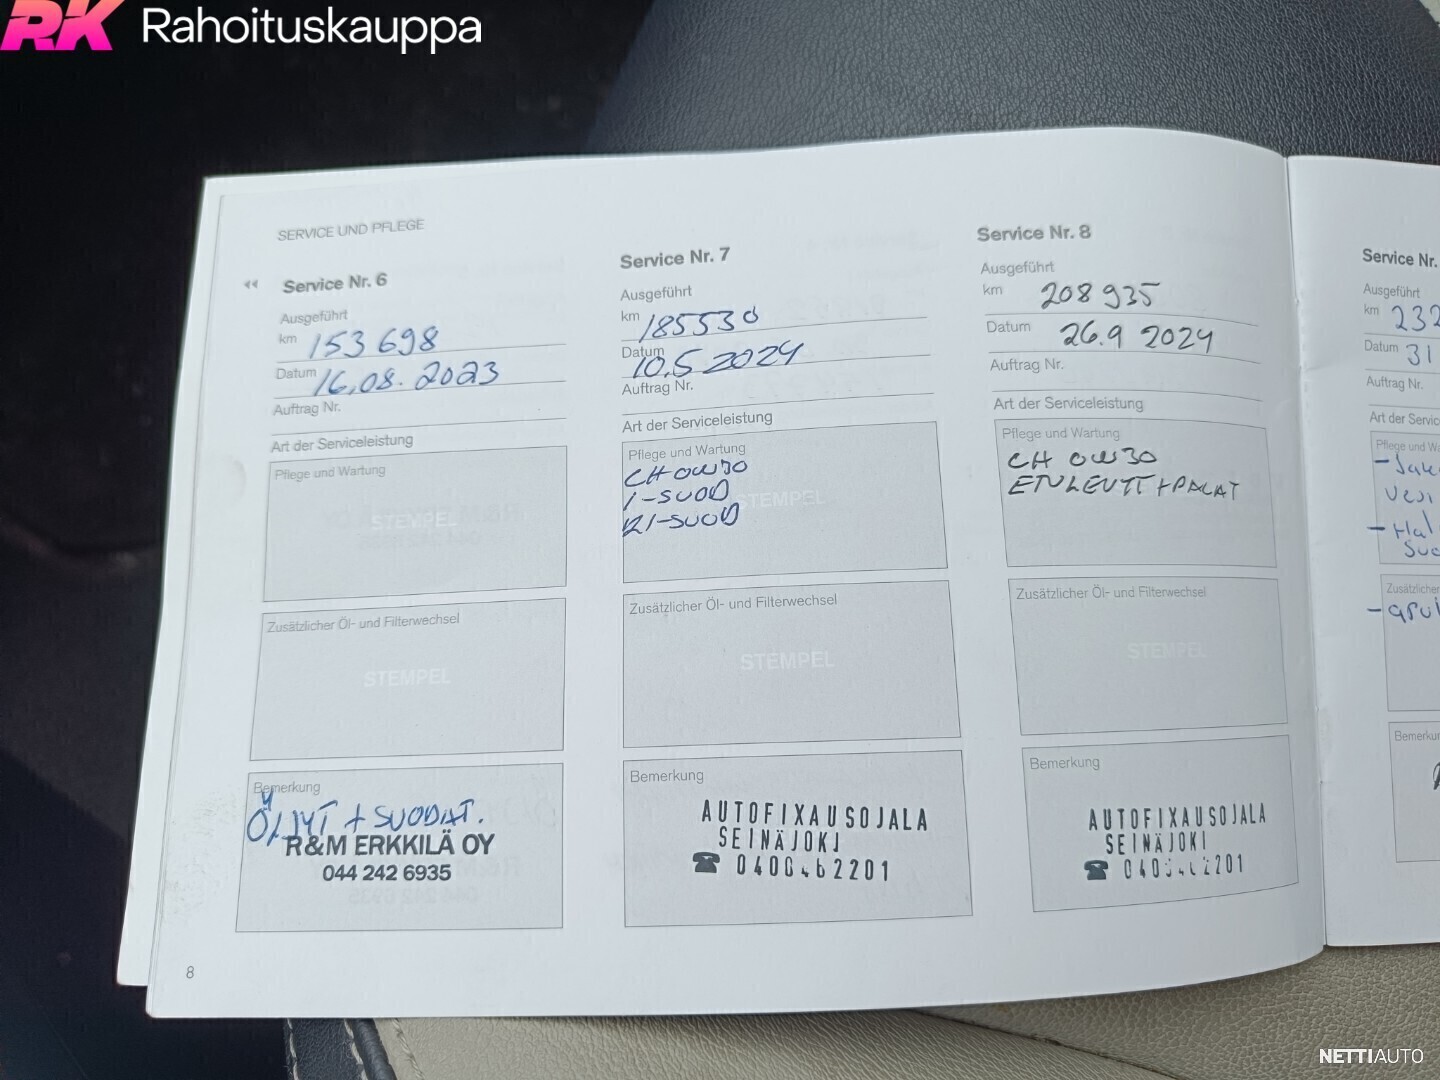 RK Rahoituskauppa
SERVICE UND PFLEGE
Service Nr. 6
Ausgeführt
km 153 698
Datum 16.08.2023
Auftrag Nr.
Art der Serviceleistung
Pflege und Wartung
STEMPEL
Zusätzlicher Öl- und Filterwechsel
STEMPEL
Bemerkung
ÖLJYT + SUODAT.
R&M ERKKILÄ OY
044 242 6935
8
Service Nr. 7
Ausgeführt
km 185530
Datum 10.5 2024
Auftrag Nr.
Art der Serviceleistung
Pflege und Wartung
CH 0W30
I-SUOD
RI-SUOD
STEMPEL
Zusätzlicher Öl- und Filterwechsel
STEMPEL
Bemerkung
AUTOFIXAUSOJALA
SEINÄJOKI
☎ 0400462201
Service Nr. 8
Ausgeführt
km 208 935
Datum 26.9 2024
Auftrag Nr.
Art der Serviceleistung
Pflege und Wartung
CH 0W30
ETULEVYT+PALAT
Zusätzlicher Öl- und Filterwechsel
STEMPEL
Bemerkung
AUTOFIXAUSOJALA
SEINÄJOKI
Service Nr.
Ausgeführt
km 232
Datum 31
Auftrag Nr.
Art der Servic
Pflege und Wa
Zusätzlicher
Bemerkun
NETTIAUTO